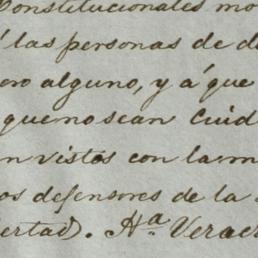 Constitucionales mo
las personas de d
oro alguno, y á que
que no sean Cuid
n vistos con la m
os defensores de la
ertad. Ha. Verac